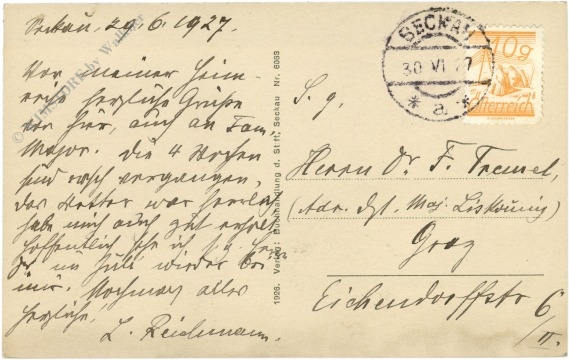 Seckau, 29.6.1927.
Vor meiner Heim-
reise herzliche Grüße
von hier, auch an Fam.
Major. Die 4 Wochen
sind rasch vergangen,
das Wetter war herrlich
habe mich auch gut erholt
hoffentlich sehe ich
im Juli wieder bei
mir. Nochmals alles
herzliche.
L. Reichmann.
1926. Verlag: Buchhandlung d. Stift, Seckau Nr. 6063
SECKAU
30 VI 27
* a *
10g
Österreich
S. g.
Herrn Dr. F. Tremel,
(Adr. Maj. Liskounig)
Graz
Eichendorffstr 6
/II.